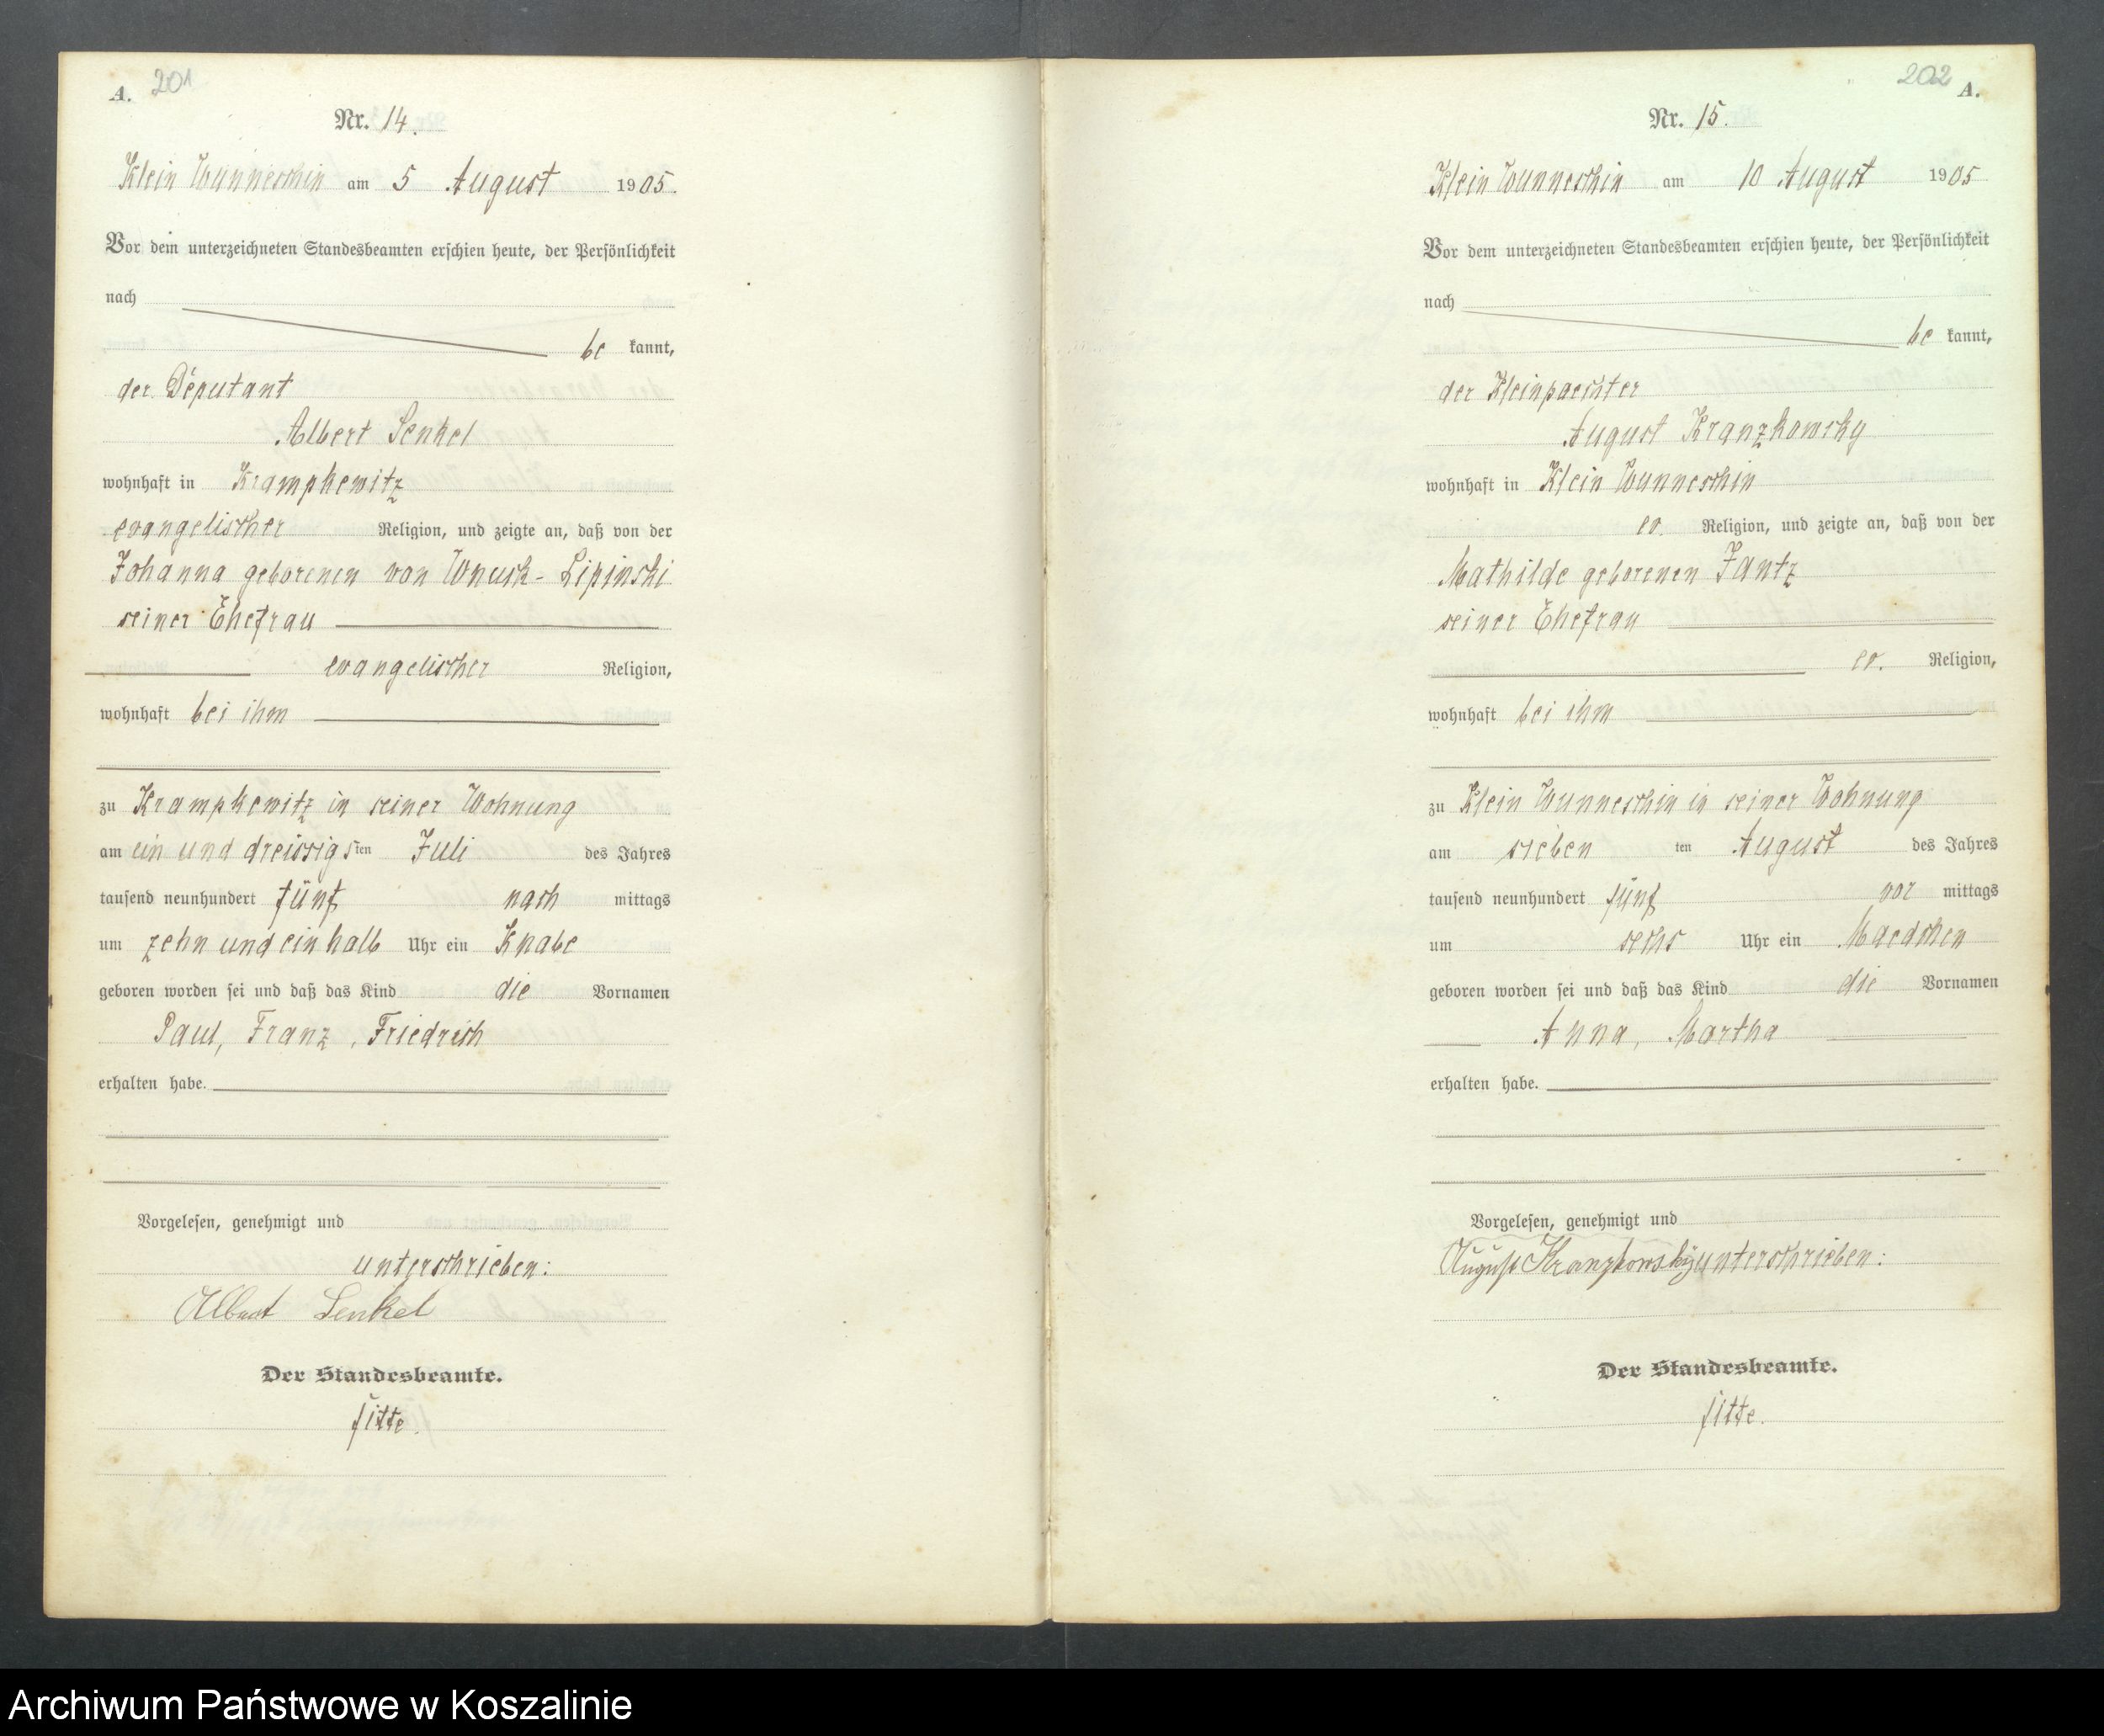 A. 201
Nr. 14.
Klein Wunneschin am 5 August 1905.
Vor dem unterzeichneten Standesbeamten erschien heute, der Persönlichkeit
nach
be kannt,
der Deputant
Albert Senkel
wohnhaft in Krampkewitz
evangelischer Religion, und zeigte an, daß von der
Johanna geborenen von Wnuck-Lipinski
seiner Ehefrau
evangelischer Religion,
wohnhaft bei ihm
zu Krampkewitz in seiner Wohnung
am ein und dreissigsten Juli des Jahres
tausend neunhundert fünf nach mittags
um zehn und ein halb Uhr ein Knabe
geboren worden sei und daß das Kind die Vornamen
Paul, Franz, Friedrich
erhalten habe.
Vorgelesen, genehmigt und
unterschrieben:
Albert Senkel
Der Standesbeamte.
Fitte.
202 A.
Nr. 15.
Klein Wunneschin am 10 August 1905
Vor dem unterzeichneten Standesbeamten erschien heute, der Persönlichkeit
nach
be kannt,
der Kleinpaechter
August Kranzkowsky
wohnhaft in Klein Wunneschin
ev. Religion, und zeigte an, daß von der
Mathilde geborenen Jantz
seiner Ehefrau
ev. Religion,
wohnhaft bei ihm
zu Klein Wunneschin in seiner Wohnung
am sieben ten August des Jahres
tausend neunhundert fünf vor mittags
um sechs Uhr ein Maedchen
geboren worden sei und daß das Kind die Vornamen
Anna, Martha
erhalten habe.
Vorgelesen, genehmigt und
August Kranzkowsky unterschrieben:
Der Standesbeamte.
Fitte.
Archiwum Państwowe w Koszalinie